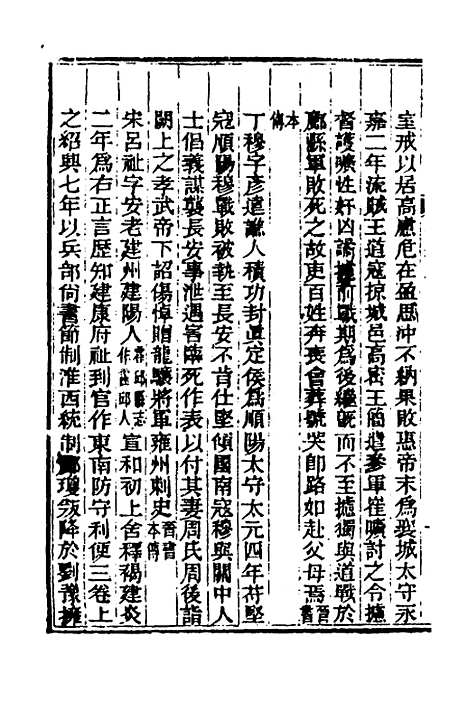 室戒以居高慮危在盈思沖不納果敗惠帝末為襄城太守永
嘉二年流賊王道寇掠城邑高密王簡遣參軍崔曠討之令據
督護曠性奸凶誘據前戰期為後繼既而不至據獨與道戰於
酈縣軍敗死之故吏百姓奔喪會葬號哭即路如赴父母焉晉
本傳
丁穆字彥遠譙人積功封眞定侯為順陽太守太元四年苻堅
寇順陽穆戰敗被執至長安不肯仕堅傾國南寇穆與關中人
士倡義謀襲長安事泄遇害臨死作表以付其妻周氏周後詣
闕上之孝武帝下詔傷悼贈龍驤將軍雍州刺史晉書本傳
宋呂祉字安老建州建陽人霍邱縣志作霍邱人宣和初上舍釋褐建炎
二年為右正言歷知建康府祉到官作東南防守利便三卷上
之紹興七年以兵部尙書節制淮西統制酈瓊叛降於劉豫擁